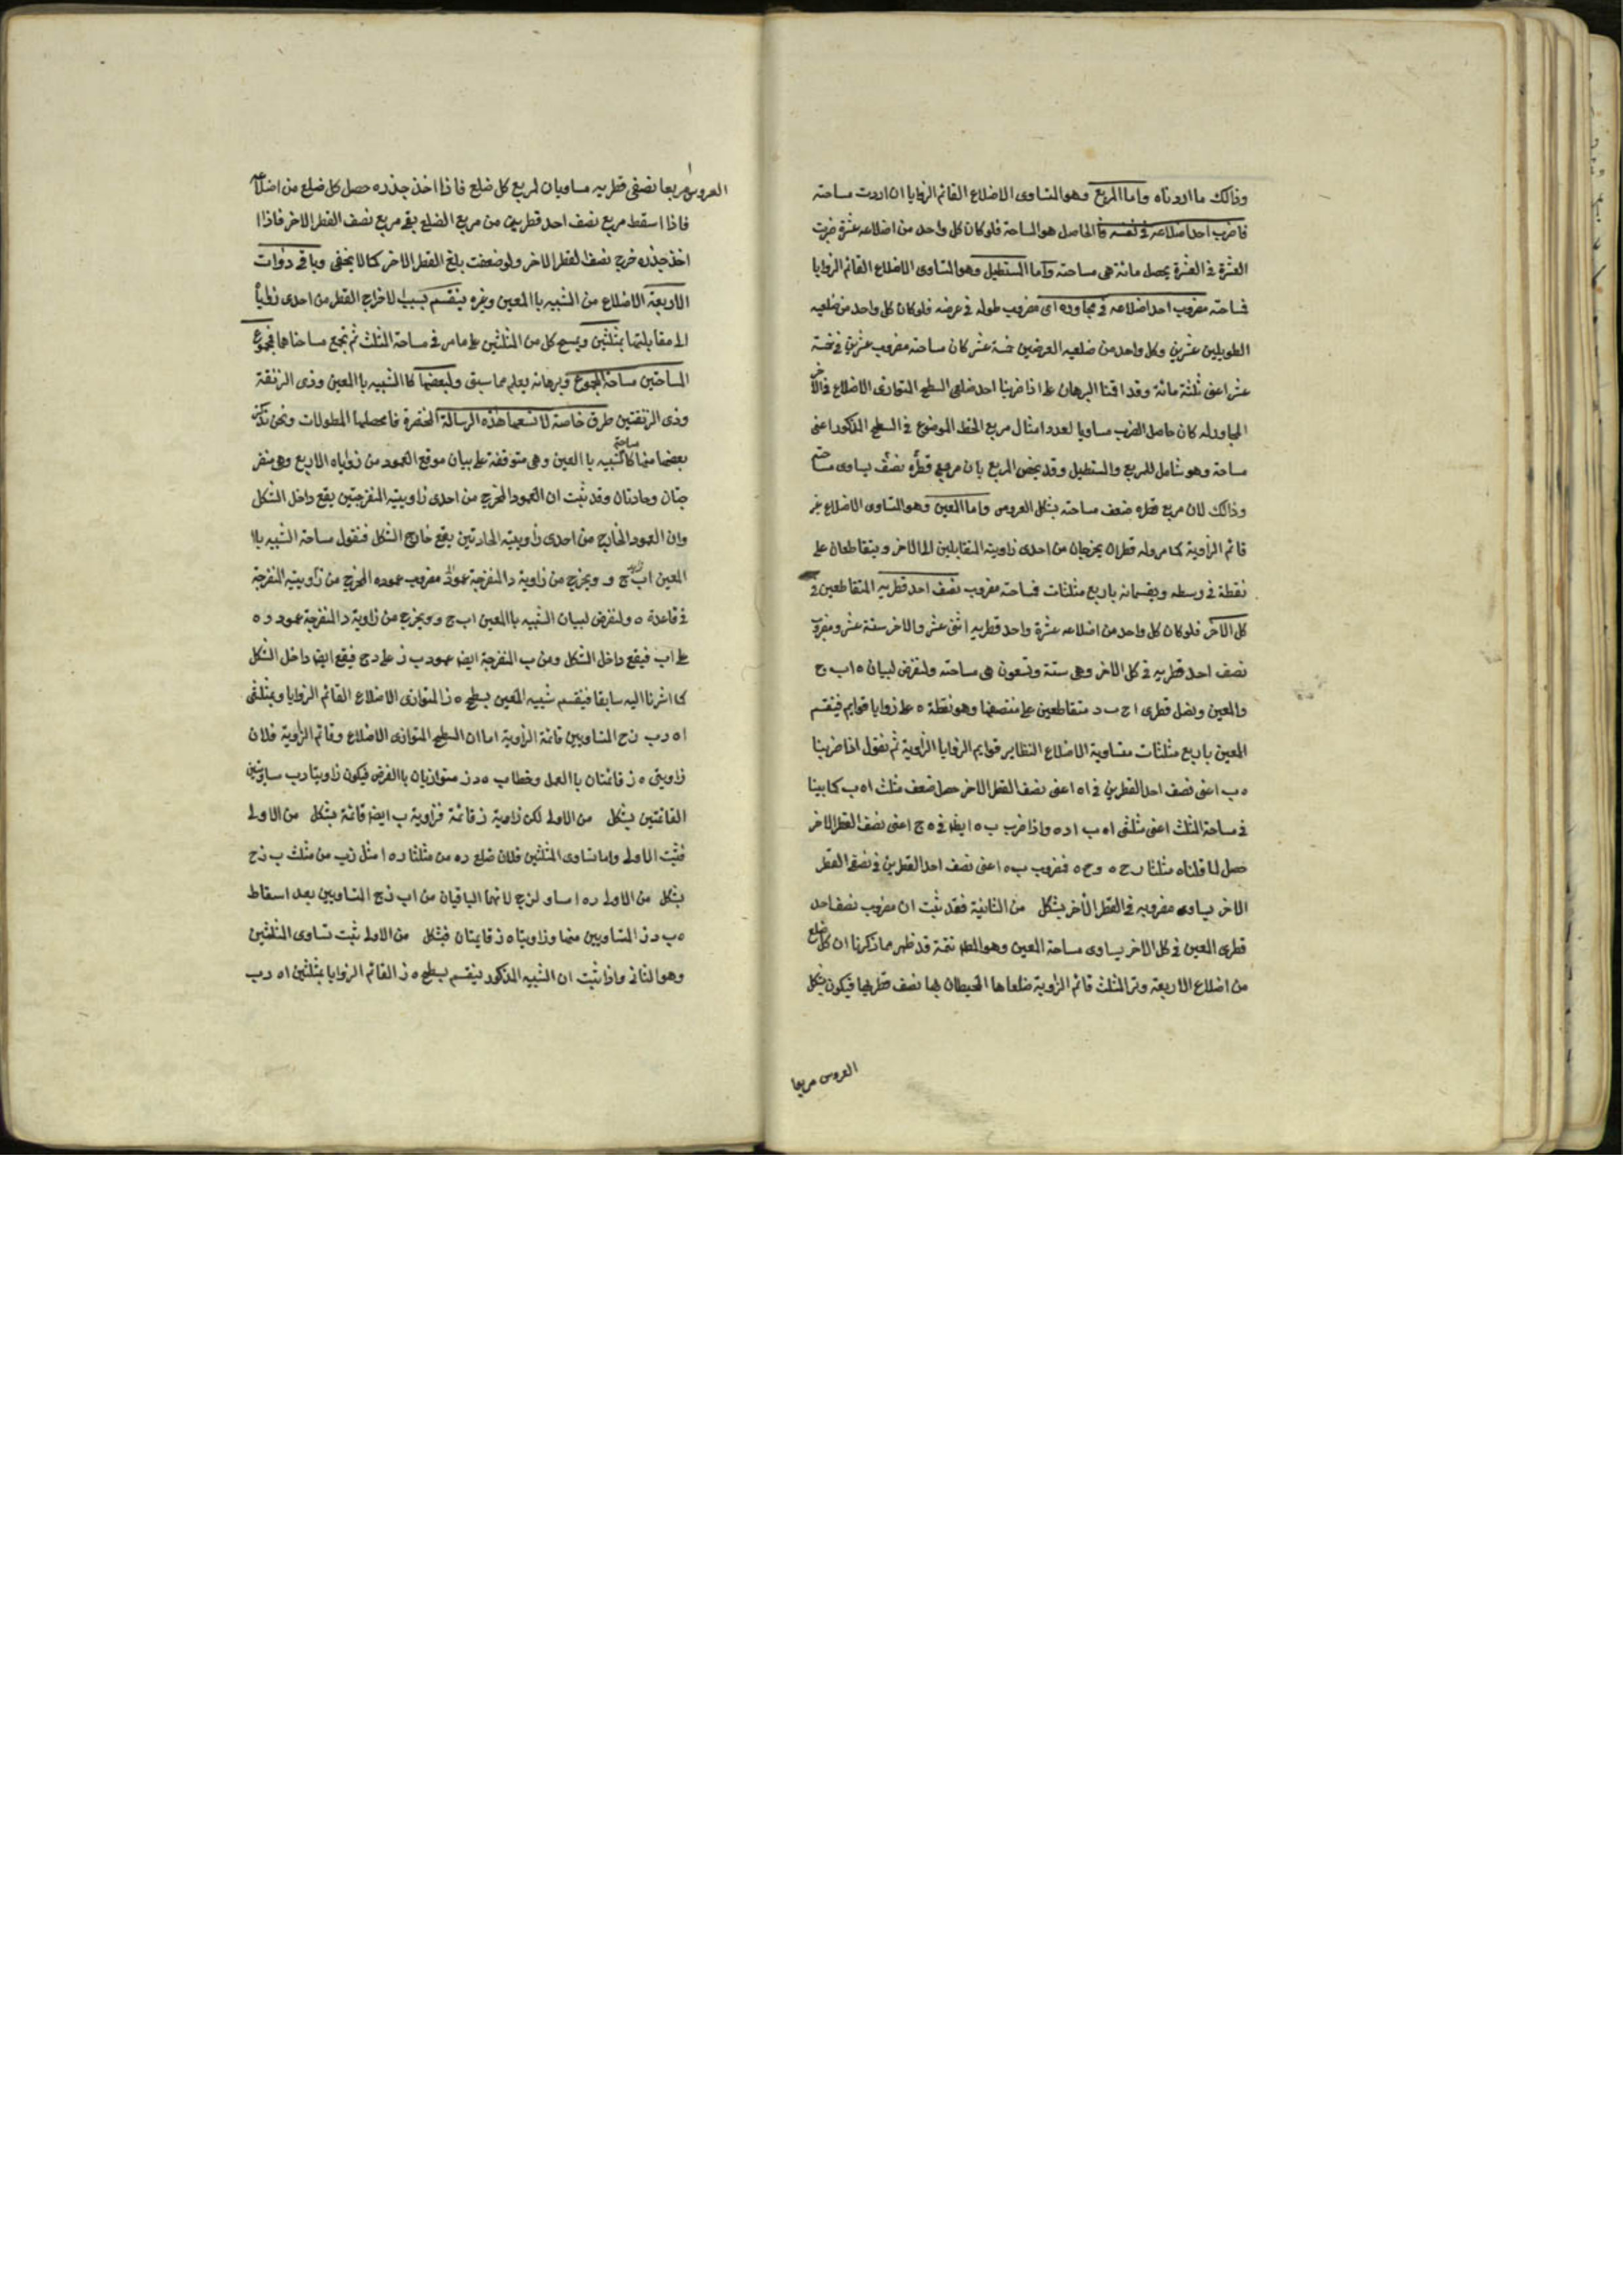 وذالك ما اردناه واما المربع وهو المتساوى الاضلاع القائم الزوايا ان اردت مساحته
فاضرب احد اضلاعه فى نفسه فالحاصل هو المساحة فلو كان كل واحد من اضلاعه عشرة ضربت
العشرة فى العشرة يحصل مائة هى مساحته واما المستطيل وهو المتساوى الاضلاع القائم الزوايا
فمساحته مضروب احد اضلاعه فى مجاوره اى مضروب طوله فى عرضه فلو كان كل واحد من ضلعيه
الطويلين عشرين وكل واحد من ضلعيه العرضين خمسة عشر كان مساحته مضروب عشرين فى خمسة
عشر اعنى ثلثة مائة وقد اقمنا البرهان على اذا ضربنا احد ضلعى السطح المتوازى الاضلاع فى الآخر
المجاور له كان حاصل الضرب مساويا لعدد امثال مربع الخط الموضوع فى السطح المذكور اعنى
مساحة وهو شامل للمربع والمستطيل وقد يخص المربع بان مربع قطره نصفه يساوى مساحته
وذالك لان مربع قطره ضعف مساحته بشكل العروس واما المعين وهو المتساوى الاضلاع غير
قائم الزاوية كما مر وله قطران يخرجان من احدى زاويته المتقابلين الى الاخر ويتقاطعان على
نقطة فى وسطه ويقسمانه باربع مثلثات فمساحته مضروب نصف احد قطريه المتقاطعين فى
كل الاخر فلو كان كل واحد من اضلاعه عشرة واحد قطريه اثنى عشر والاخر ستة عشر ومضروب
نصف احد قطريه فى كل الاخر وهى ستة وتسعون هى مساحته ولنفرض لبيان ه ا ب ح
والمعين ونصل قطرى ا ح ب د متقاطعين على منتصفهما وهو نقطة ه على زوايا قوايم فينقسم
المعين باربع مثلثات متساوية الاضلاع النظاير قوايم الزوايا الزاوية ثم نقول اذا ضربنا
ه ب اعنى نصف احد القطرين فى ا ه اعنى نصف القطر الاخر حصل ضعف مثلث ا ه ب كما بينا
فى مساحة المثلث اعنى مثلثى ا ه ب ا د ه واذا ضرب ب ه ايضا فى ه ج اعنى نصف القطر الاخر
حصل لما قلناه مثلثا ب ح ه د ح ه فمضروب ب ه اعنى نصف احد القطرين فى نصفى القطر
الاخر يساوى مضروبه فى القطر الاخر بشكل من الثانية فقد ثبت ان مضروب نصف احد
قطرى المعين فى كل الاخر يساوى مساحة المعين وهو المط تتمة قد ظهر مما ذكرنا ان كل ضلع
من اضلاع الاربعة وتر المثلث قائم الزاوية ضلعاها المحيطان بها نصف قطريها فيكون بشكل
العروس مربعا
العروس مربعا نصفى قطريه مساويان لمربع كل ضلع فاذا اخذ جذره حصل كل ضلع من اضلاعه
فاذا اسقط مربع نصف احد قطريه من مربع الضلع بقى مربع نصف القطر الاخر فاذا ا
اخذ جذره خرج نصف القطر الاخر ولو ضعفت بلغ القطر الاخر كما لا يخفى وباقى ذوات
الاربعة الاضلاع من الشبيه با المعين وغيره ينقسم بسبب لاخراج القطر من احدى زواياه
الى مقابلتها بمثلثين ويمسح كل من المثلثين على ما مر فى مساحة المثلث ثم تجمع مساحتاهما فمجموع
المساحتين مساحة المجموع وبرهانه يعلم مما سبق ولبعضها كا الشبيه با المعين وذى الزنقة
وذى الزنقتين طرق خاصة لا تسعها هذه الرسالة المختصرة فانما محصلها المطولات ونحن نذكر
بعضها منها مساحة كا الشبيه با المعين وهى متوقفة على بيان موقع العمود من زواياه الاربع وهى منفر
جتان وحادتان وقد ثبت ان العمود المخرج من احدى زاويتيه المنفرجتين يقع داخل الشكل
وان العمود الخارج من احدى زاويتيه الحادتين يقع خارج الشكل فنقول مساحة الشبيه با
المعين ا ب ج د ويخرج من زاوية د المنفرجة عمود مضروب عموده المخرج من زاويتيه المنفرجة
فى قاعدة ه ولنفرض لبيان الشبيه با المعين ا ب ج د ويخرج من زاوية د المنفرجة عمود د ه
على ا ب فيقع داخل الشكل ومن ب المنفرجة ايضا عمود ب ز على د ج فيقع ايضا داخل الشكل
كما اشرنا اليه سابقا فينقسم شبيه المعين بسطح ه ز المتوازى الاضلاع القائم الزوايا وبمثلثى
ا ه د ب ز ح المتساويين قائمة الزاوية اما ان السطح المتوازى الاضلاع وقائم الزاوية فلان
زاويتى ه ز قائمتان با العمل وخطا ب ه د ز متوازيان با الفرض فيكون زاويتا د ب مساويتين
القائمتين بشكل من الاولى لكن زاوية ز قائمة فزاوية ب ايضا قائمة بشكل من الاولى
فثبت الاولى واما تساوى المثلثين فلان ضلع د ه من مثلثا د ه ا مثل ز ب من مثلث ب ز ح
بشكل من الاولى د ه ا مساو لز ج لانهما الباقيان من ا ب ز ج المتساويين بعد اسقاط
ه ب د ز المتساويين منهما وزاويتا ه ز قايمتان فبشكل من الاولى ثبت تساوى المثلثين
وهو الثانى واذا ثبت ان الشبيه المذكور ينقسم بسطح ه ز القائم الزوايا بمثلثين ا ه د ب